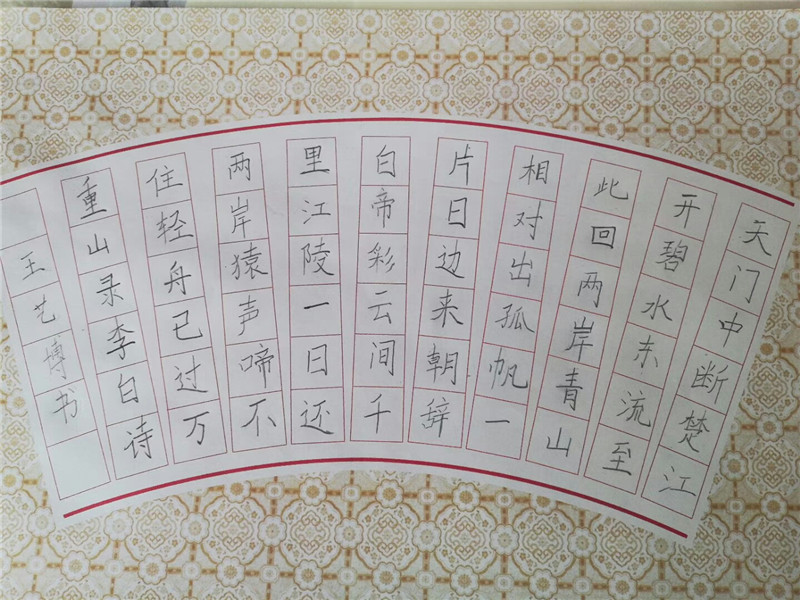 天门中断楚江
开碧水东流至
此回两岸青山
相对出孤帆一
片日边来朝辞
白帝彩云间千
里江陵一日还
两岸猿声啼不
住轻舟已过万
重山录李白诗
王艺博书